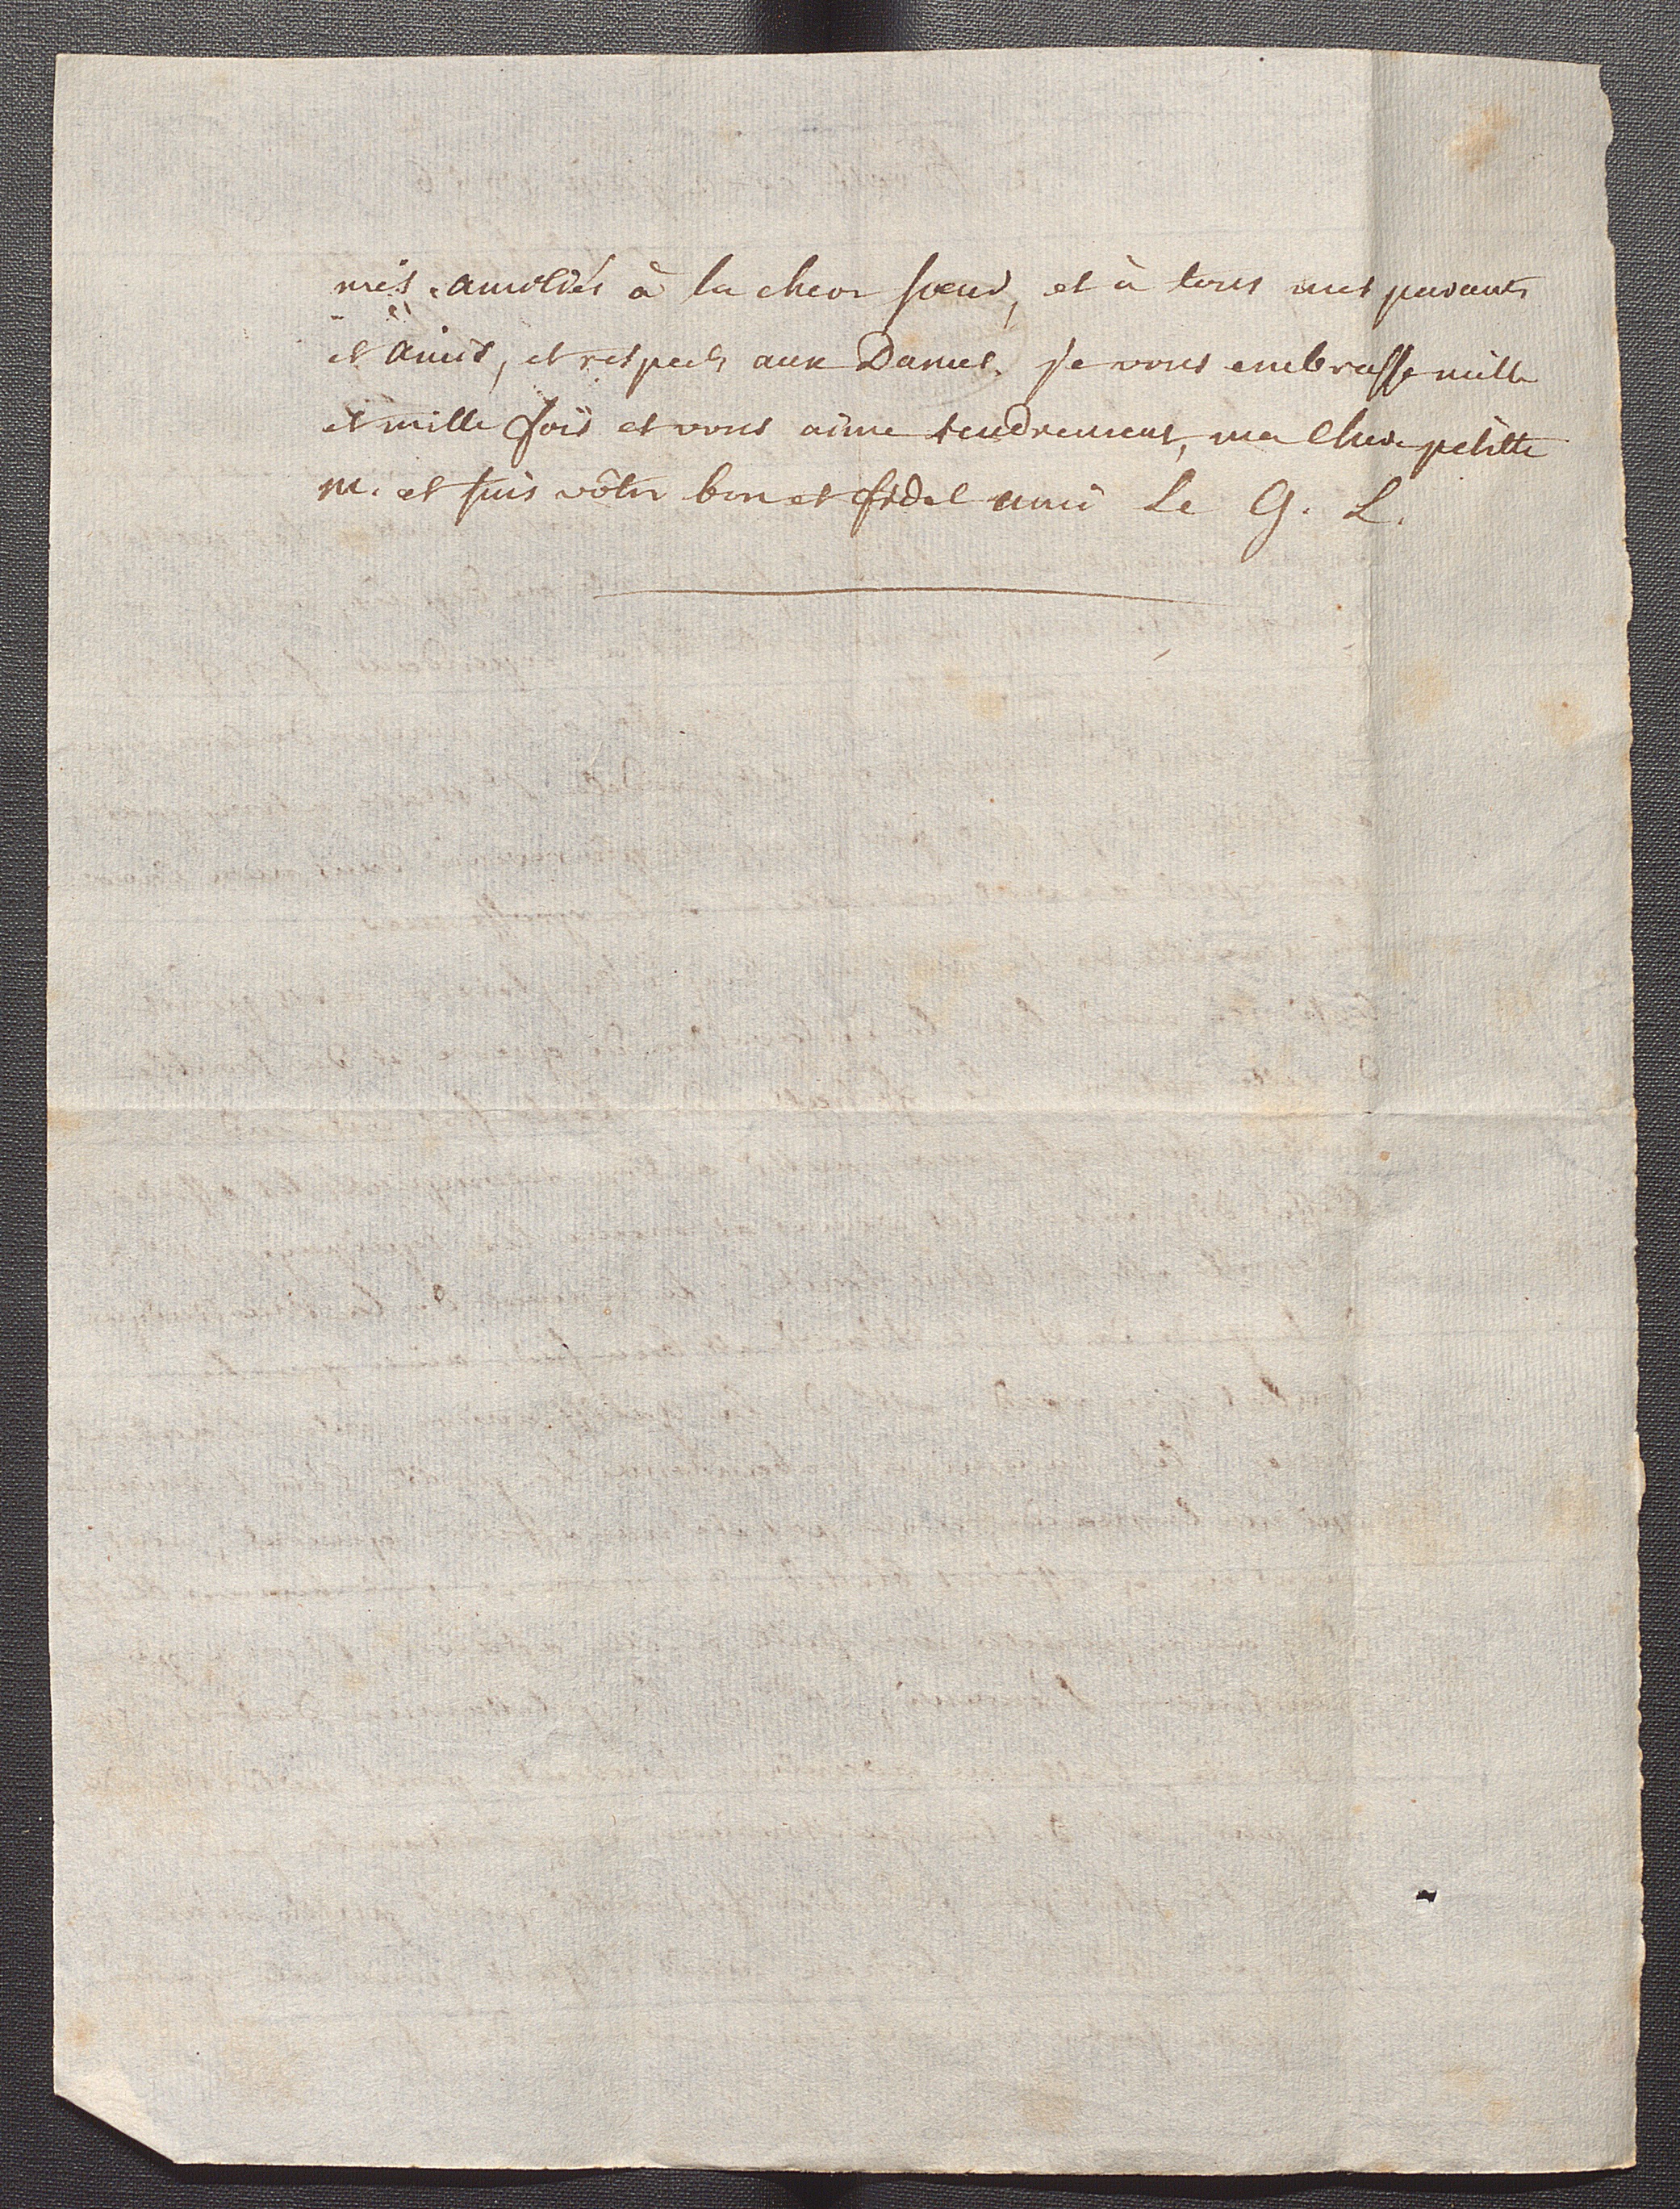 mes amitiés à la cheor soeur, et à tous mes parants
et amis, et respects aux Dames. je vous embrasse mille
et mille fois et vous aime tendrement, ma chere petitte
m. et suis vôtre bon et fidel ami Le G. L.